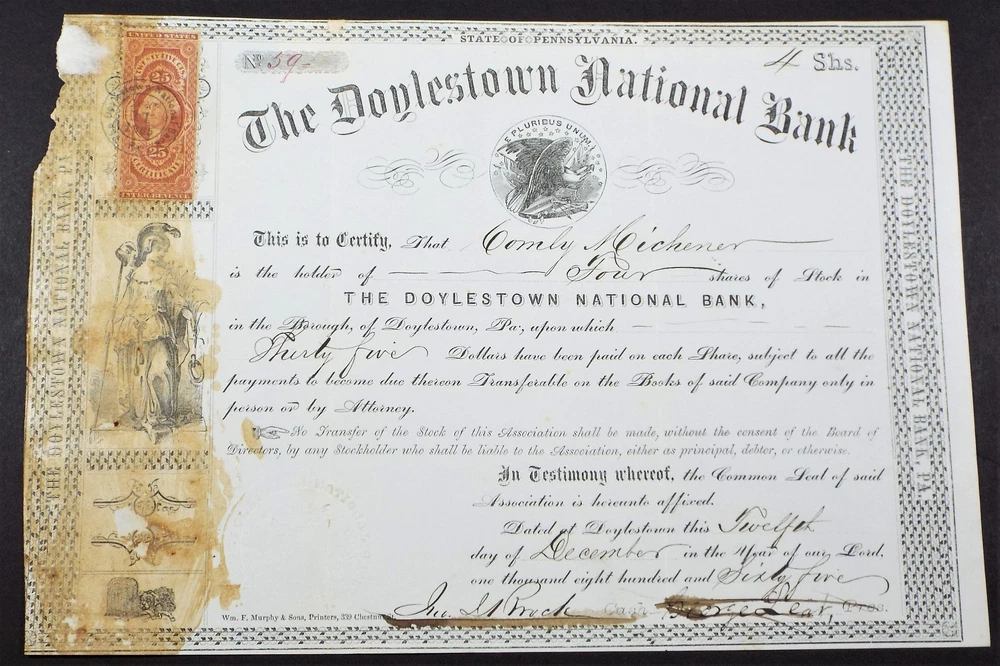 STATE OF PENNSYLVANIA.
No 59
4 Shs.
UNITED STATES
25 25
25 25
CERTIFICATE
INTER. REVENUE
The Doylestown National Bank
E PLURIBUS UNUM
This is to Certify, That Comly Michener
is the holder of Four shares of Stock in
THE DOYLESTOWN NATIONAL BANK,
in the Borough, of Doylestown, Pa., upon which
Thirty five Dollars have been paid on each Share, subject to all the
payments to become due thereon Transferable on the Books of said Company only in
person or by Attorney.
No Transfer of the Stock of this Association shall be made, without the consent of the Board of
Directors, by any Stockholder who shall be liable to the Association, either as principal, debtor, or otherwise.
In Testimony whereof, the Common Seal of said
Association is hereunto affixed.
Dated at Doylestown this Twelfth
day of December in the Year of our Lord,
one thousand eight hundred and Sixty five
Jno. J. Brock Cash. George Lear, Pres.
Wm. F. Murphy & Sons, Printers, 339 Chestnut
THE DOYLESTOWN NATIONAL BANK, PA.
THE DOYLESTOWN NATIONAL BANK, PA.